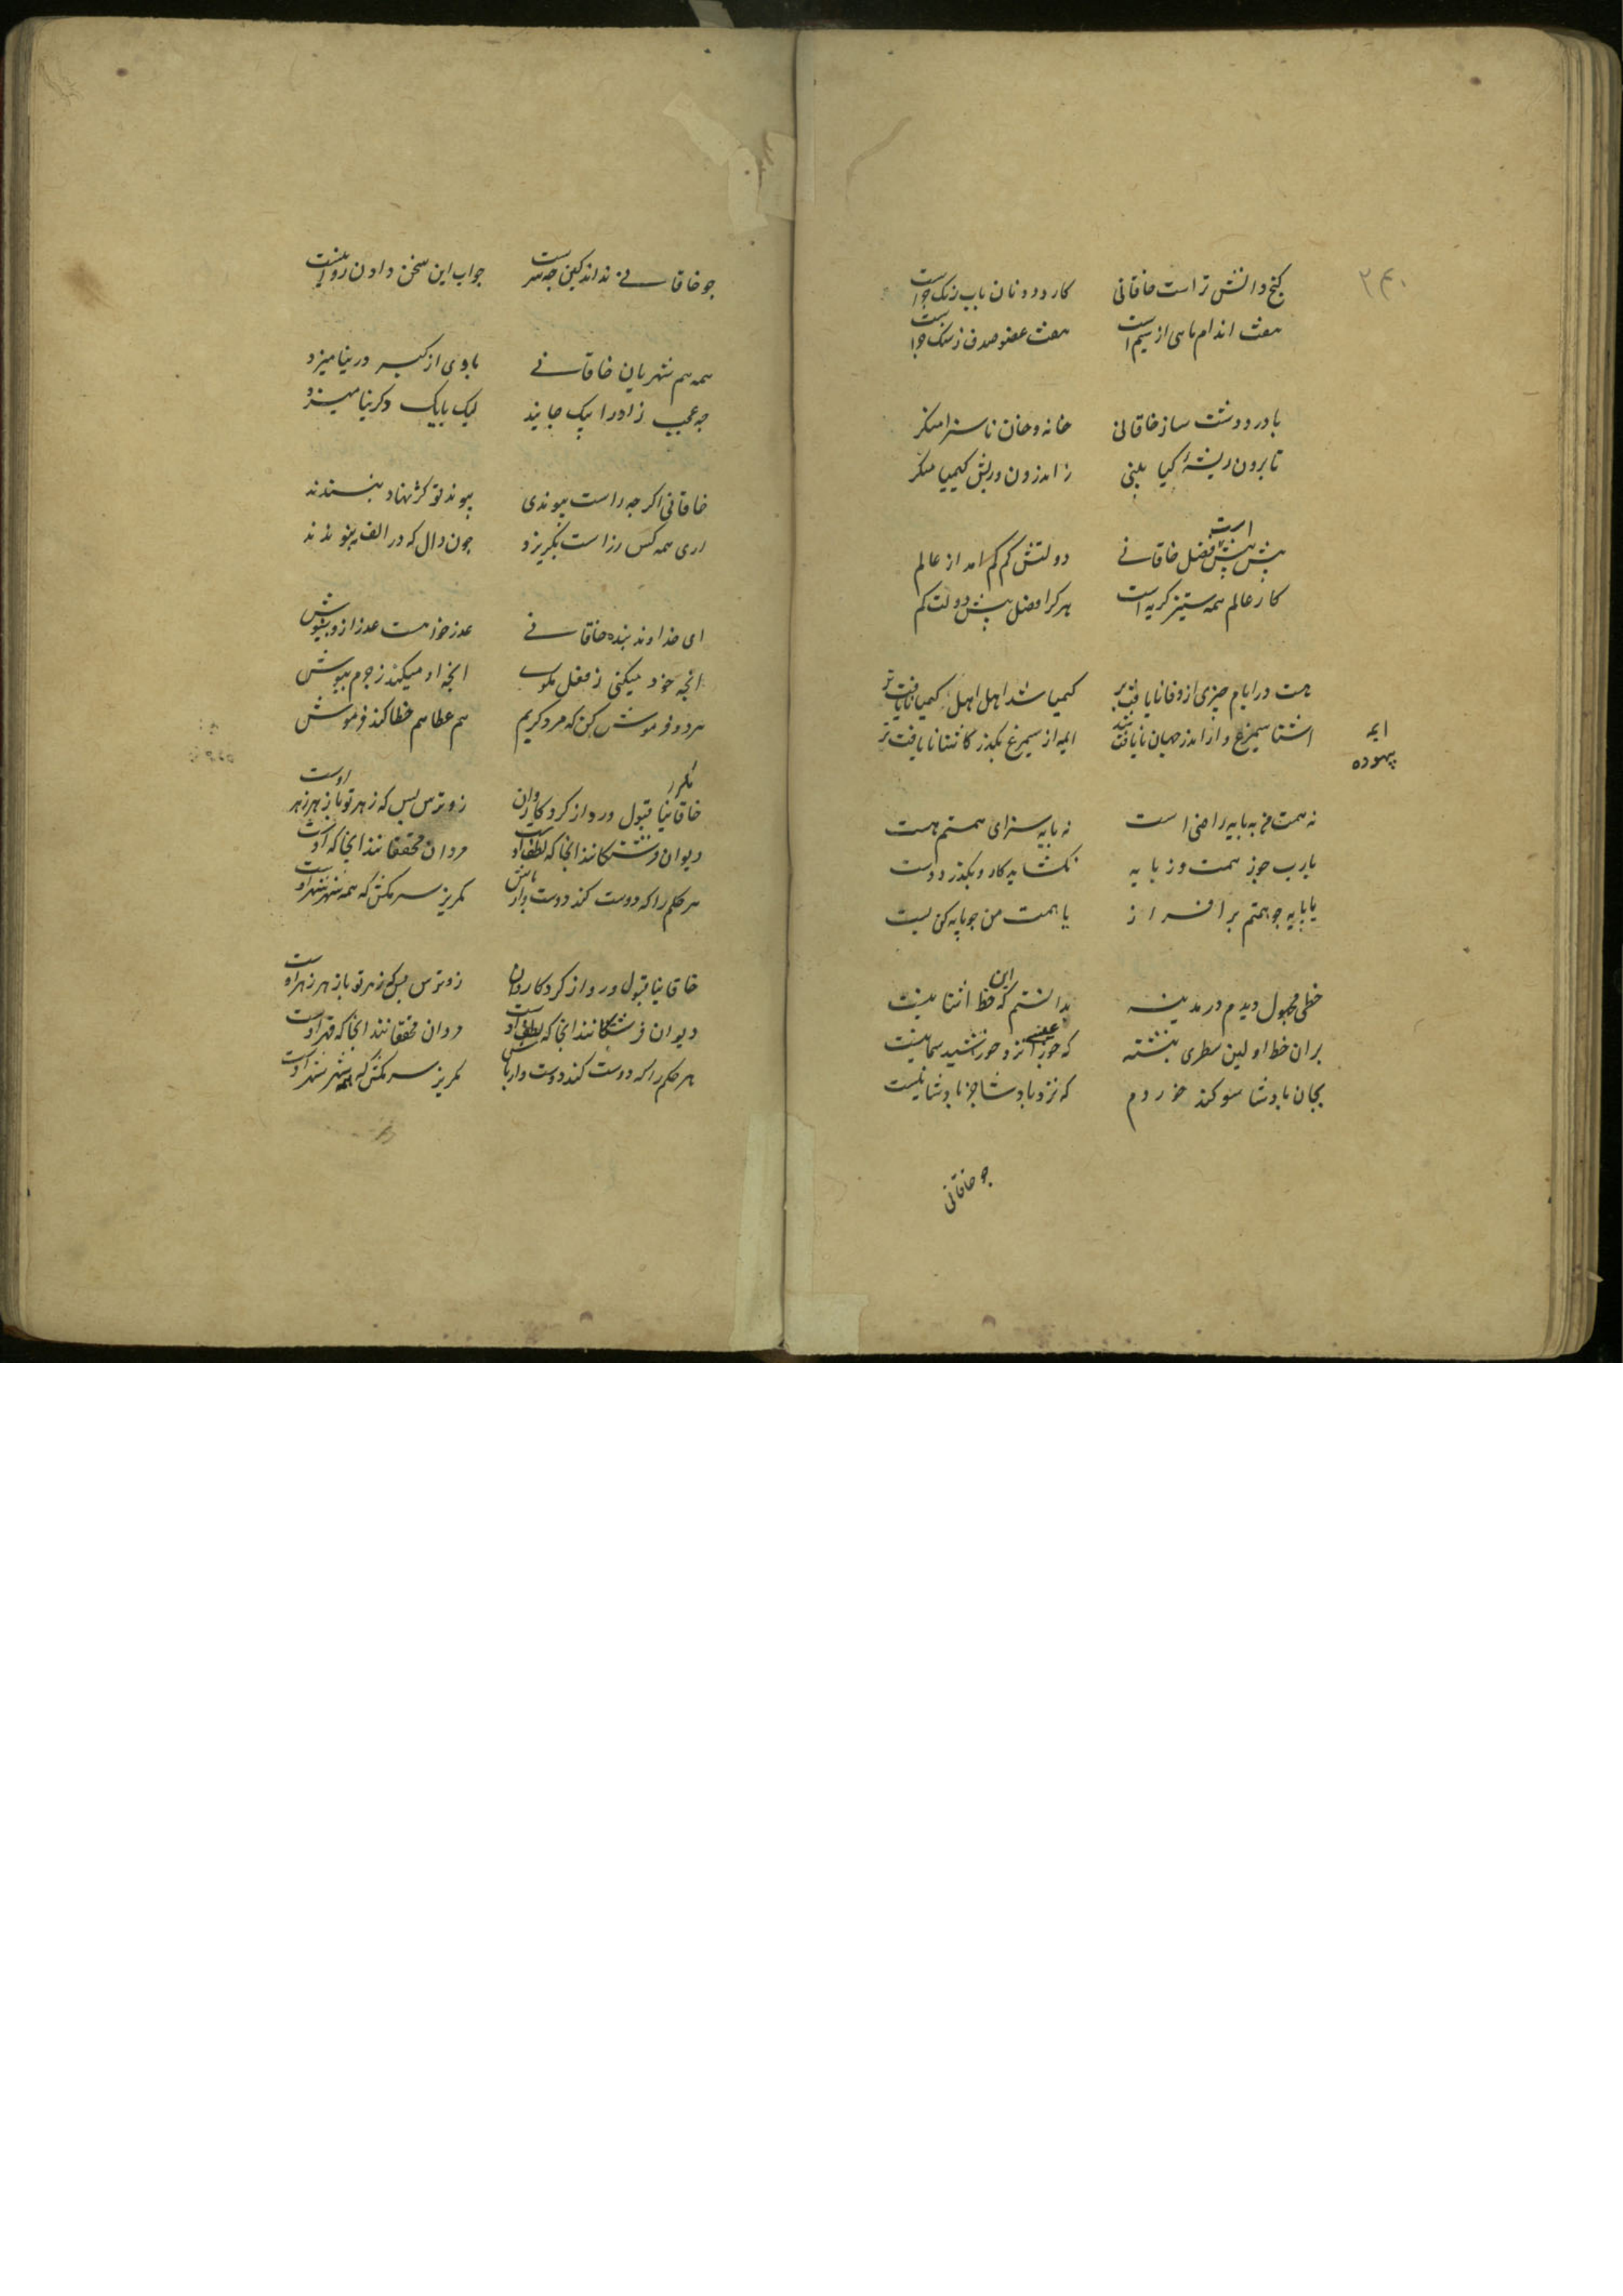 ۲۴۰
کنج دانش تراست خاقانی کار دونان باب رنک جراست
هفت اندام ماهی از سیم است هفت عضو صدف ز سنک جراست
با در دوست ساز خاقانی خانه و خان ناسزا منکر
تا برون ریشهٔ کیا بینی ز اندرون دربش کیمیا منکر
بیش بیش است فضل خاقانی دولتش کم کم امد از عالم
کار عالم همه ستیز کریست هرکرا فضل بیش دولت کم
هست در ایام چیزی از وفا نایافت تر کیمیا شد اهل اهل کیمیا نایافت تر
اشنا سیمرغ وار اندر جهان نایافت شد ایمه از سیمرغ بکذر کاشنا نایافت تر
ایمه
بیهوده
نه همت من به بایه راضی است نه بایه سزای همتم هست
یارب جو ز همت و ز بایه نکشاید کار و بکذرد دست
یا بایه جو همتم برافراز یا همت من جو بایه کن بست
خطی مجهول دیدم در مدینه بدانستم که این خط اشنا نیست
بران خط اولین سطری نبشته که جوزا نزد خورشید سما نیست
بجان بادشا سوکند خوردم که نزد بادشا جز بادشا نیست
جو خاقانی
جو خاقانی نداند کین جه سرست جواب این سخن دادن روا نیست
همه هم شهریان خاقانی با وی از کبر در نیامیزد
جه عجب زادرا بیک جایند لیک با یک دکر نیامیزد
خاقانی اکرجه راست بیوندی بیوند تو کژ نهاد نبسندند
اری همه کس ز راست بکریزد جون دال که در الف نبیوندند
ای خداوند بنده خاقانی عذر خواهست عذر ازو بنیوش
انجه خود میکنی ز فضل مکوی انجه او میکند ز جرم ببوش
هر دو فرموش کن که مرد کریم هم عطا هم خطا کند فرموش
مکرر
خاقانیا قبول و رد از کردکار دان زو ترس بس که زهر تو بازهر زهر اوست
دیوان فرشتکانند انجا که لطف اوست مردان مخفقانند انجا که قهر اوست
هر حکم را که دوست کند دوست دار باش مکریز سر مکش که همه شهر شهر اوست
خاقانیا قبول و رد از کردکار دان زو ترس بس که زهر تو بازهر زهر اوست
دیوان فرشتکانند انجا که لطف اوست مردان مخفقانند انجا که قهر اوست
هر حکم را که دوست کند دوست دار باش مکریز سر مکش که همه شهر شهر اوست